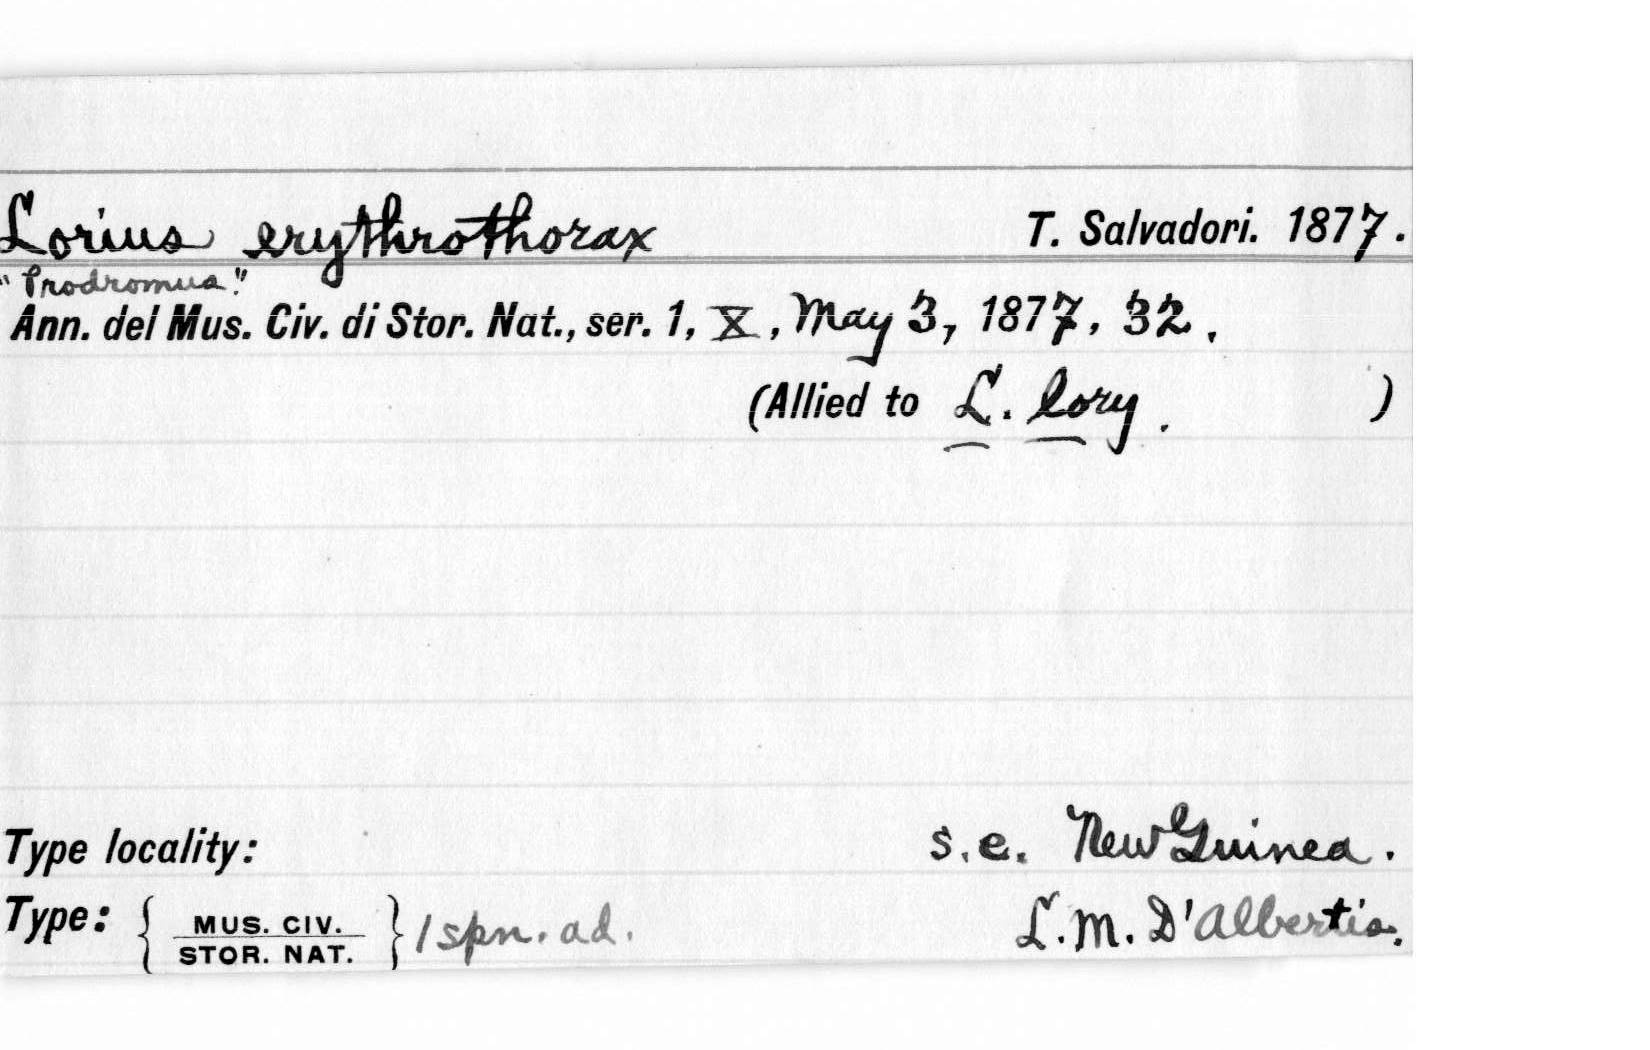 Lorius erythrothorax T. Salvadori. 1877.
"Prodromus."
Ann. del Mus. Civ. di Stor. Nat., ser. 1, X, May 3, 1877, 32.
(Allied to L. lory. )
Type locality: s.e. New Guinea.
Type: { MUS. CIV. STOR. NAT. } 1 spn. ad. L.M. D'Albertis.